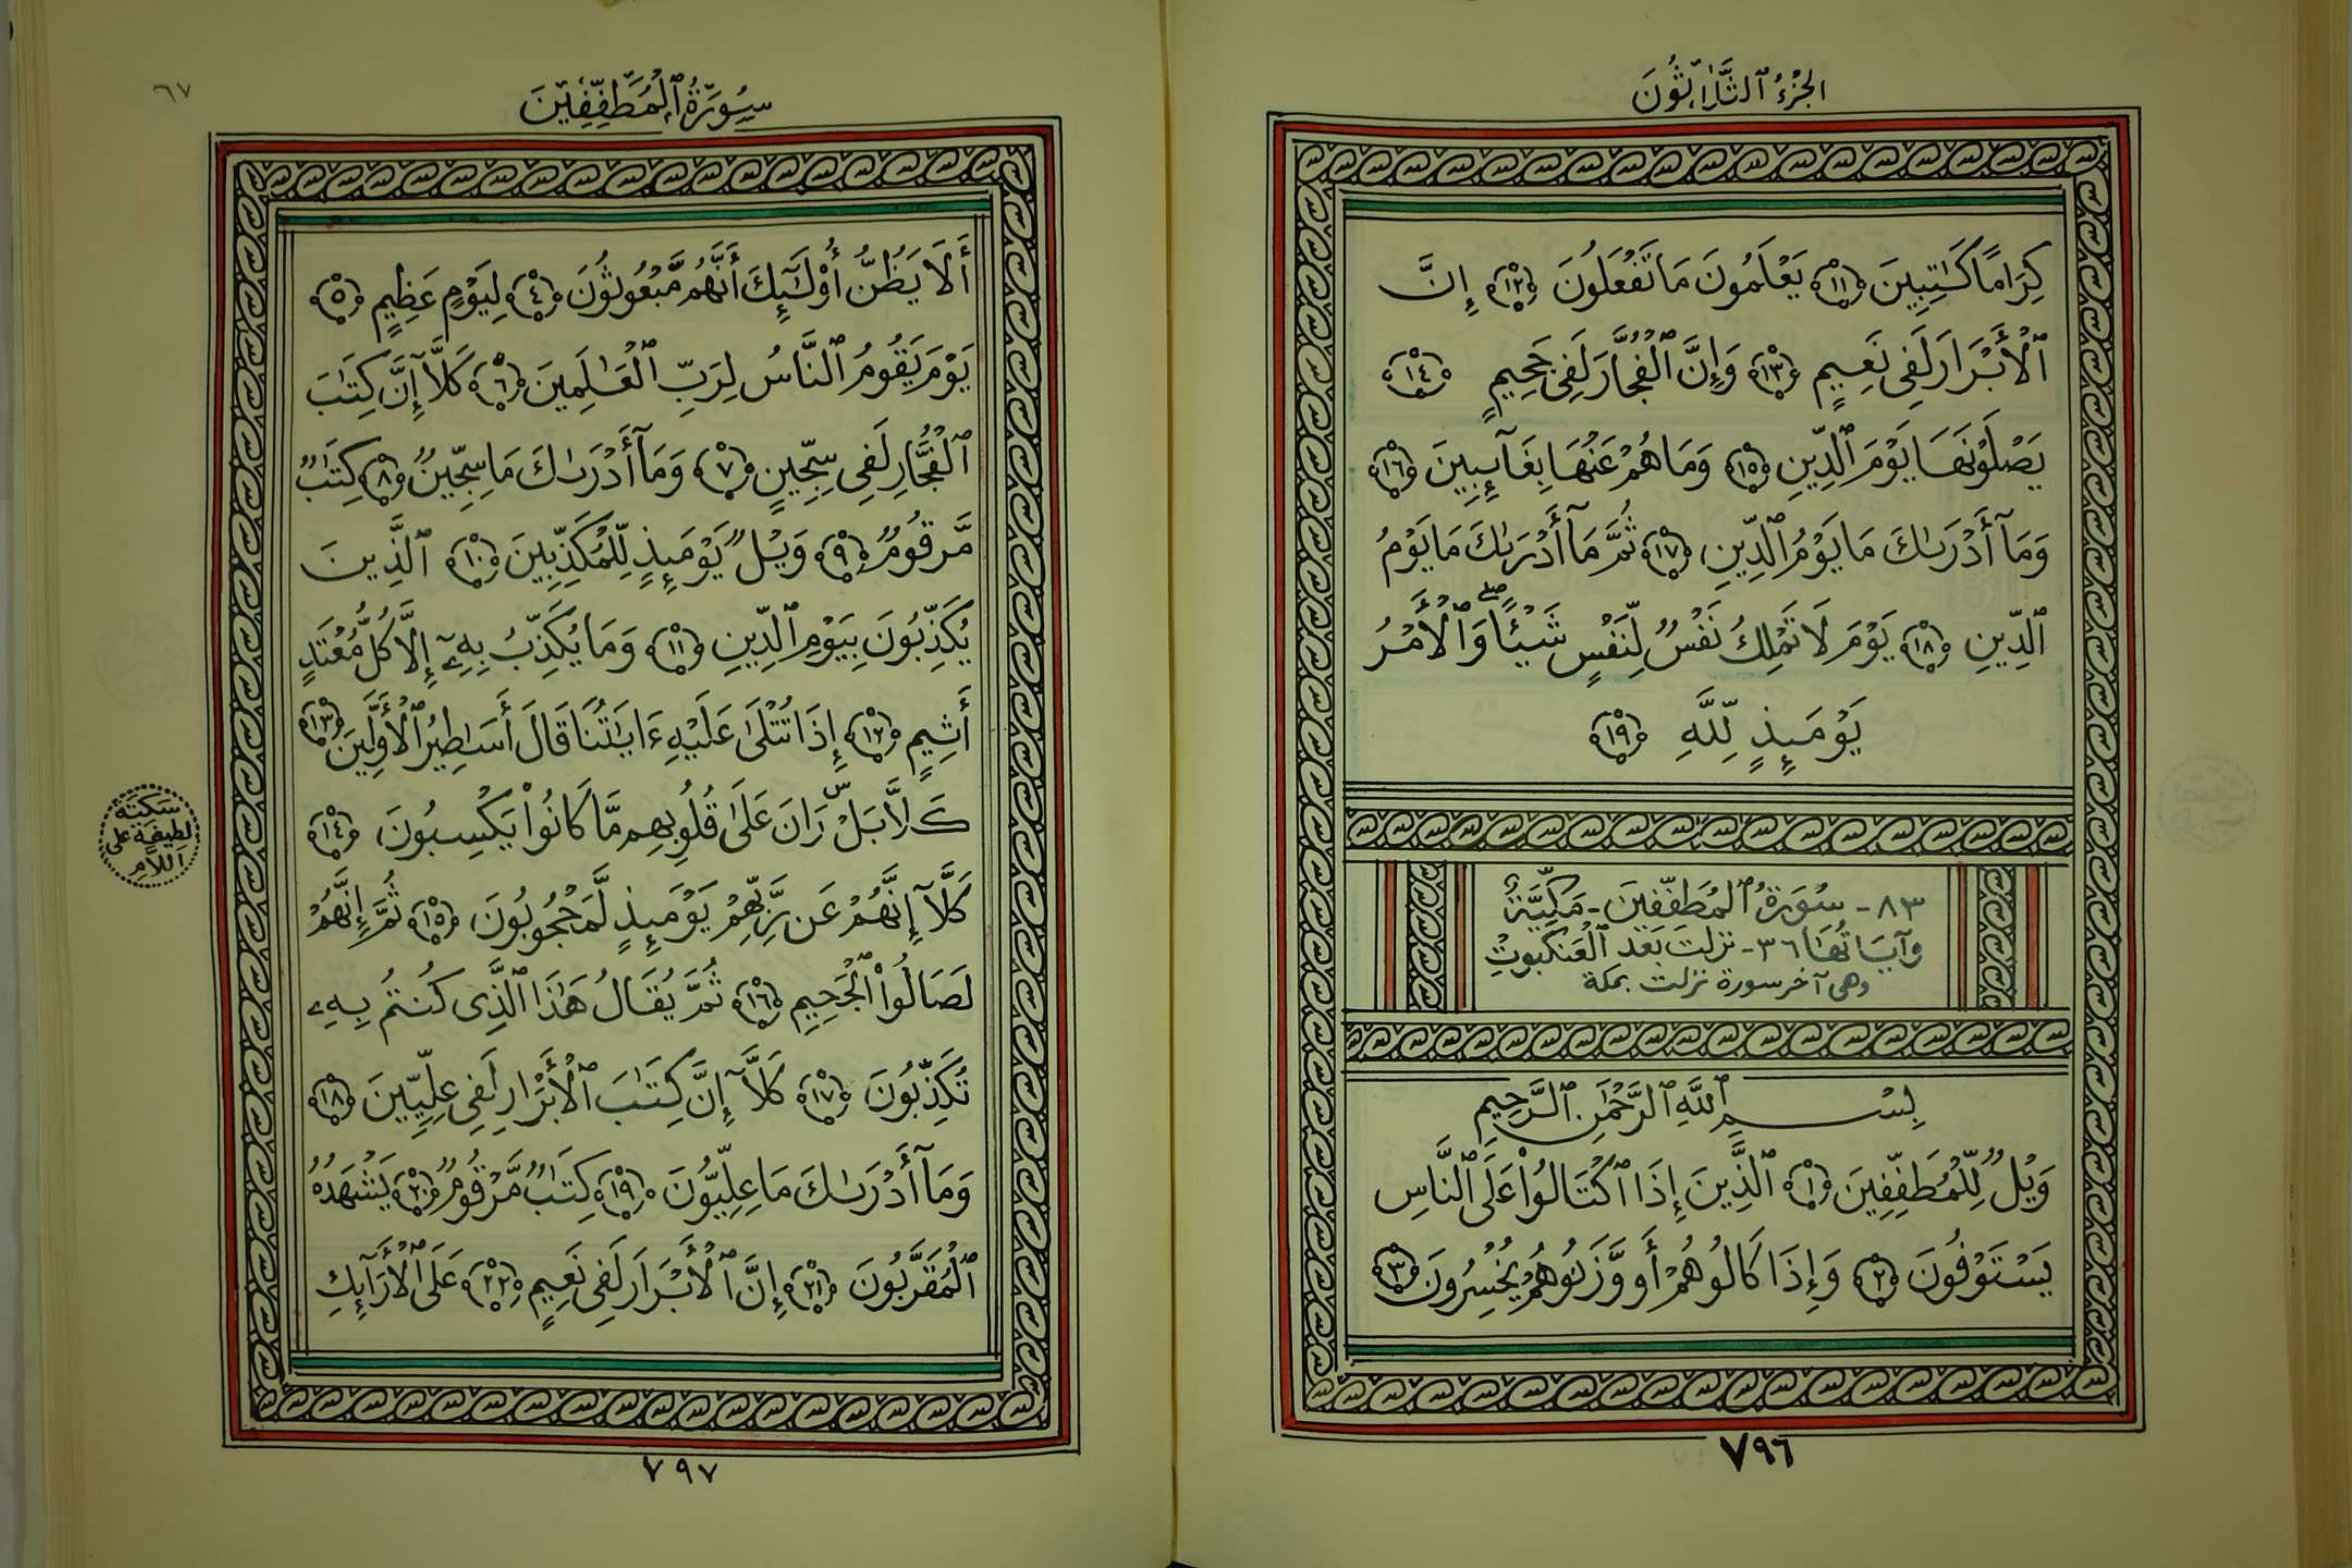 الجُزْءُ ٱلثَّلَاثُونَ
كِرَامًا كَٰتِبِينَ ﴿١١﴾ يَعْلَمُونَ مَا تَفْعَلُونَ ﴿١٢﴾ إِنَّ
ٱلْأَبْرَارَ لَفِى نَعِيمٍ ﴿١٣﴾ وَإِنَّ ٱلْفُجَّارَ لَفِى جَحِيمٍ ﴿١٤﴾
يَصْلَوْنَهَا يَوْمَ ٱلدِّينِ ﴿١٥﴾ وَمَا هُمْ عَنْهَا بِغَآئِبِينَ ﴿١٦﴾
وَمَآ أَدْرَىٰكَ مَا يَوْمُ ٱلدِّينِ ﴿١٧﴾ ثُمَّ مَآ أَدْرَىٰكَ مَا يَوْمُ
ٱلدِّينِ ﴿١٨﴾ يَوْمَ لَا تَمْلِكُ نَفْسٌ لِّنَفْسٍ شَيْـًٔا ۖ وَٱلْأَمْرُ
يَوْمَئِذٍ لِّلَّهِ ﴿١٩﴾
٨٣ - سُورَةُ ٱلمُطَفِّفِينَ - مَكِّيَّةٌ
وآيَاتُهَا ٣٦ - نزلت بَعْد ٱلْعَنكبوتِ
وهى آخر سورة نزلت بمكة
بِسْمِ ٱللَّهِ ٱلرَّحْمَٰنِ ٱلرَّحِيمِ
وَيْلٌ لِّلْمُطَفِّفِينَ ﴿١﴾ ٱلَّذِينَ إِذَا ٱكْتَالُوا۟ عَلَى ٱلنَّاسِ
يَسْتَوْفُونَ ﴿٢﴾ وَإِذَا كَالُوهُمْ أَو وَّزَنُوهُمْ يُخْسِرُونَ ﴿٣﴾
٧٩٦
٦٧
سُورَةُ ٱلْمُطَفِّفِينَ
أَلَا يَظُنُّ أُو۟لَٰٓئِكَ أَنَّهُم مَّبْعُوثُونَ ﴿٤﴾ لِيَوْمٍ عَظِيمٍ ﴿٥﴾
يَوْمَ يَقُومُ ٱلنَّاسُ لِرَبِّ ٱلْعَٰلَمِينَ ﴿٦﴾ كَلَّآ إِنَّ كِتَٰبَ
ٱلْفُجَّارِ لَفِى سِجِّينٍ ﴿٧﴾ وَمَآ أَدْرَىٰكَ مَا سِجِّينٌ ﴿٨﴾ كِتَٰبٌ
مَّرْقُومٌ ﴿٩﴾ وَيْلٌ يَوْمَئِذٍ لِّلْمُكَذِّبِينَ ﴿١٠﴾ ٱلَّذِينَ
يُكَذِّبُونَ بِيَوْمِ ٱلدِّينِ ﴿١١﴾ وَمَا يُكَذِّبُ بِهِۦٓ إِلَّا كُلُّ مُعْتَدٍ
أَثِيمٍ ﴿١٢﴾ إِذَا تُتْلَىٰ عَلَيْهِ ءَايَٰتُنَا قَالَ أَسَٰطِيرُ ٱلْأَوَّلِينَ ﴿١٣﴾
كَلَّا بَلْ ۜ رَانَ عَلَىٰ قُلُوبِهِم مَّا كَانُوا۟ يَكْسِبُونَ ﴿١٤﴾
كَلَّآ إِنَّهُمْ عَن رَّبِّهِمْ يَوْمَئِذٍ لَّمَحْجُوبُونَ ﴿١٥﴾ ثُمَّ إِنَّهُمْ
لَصَالُوا۟ ٱلْجَحِيمِ ﴿١٦﴾ ثُمَّ يُقَالُ هَٰذَا ٱلَّذِى كُنتُم بِهِۦ
تُكَذِّبُونَ ﴿١٧﴾ كَلَّآ إِنَّ كِتَٰبَ ٱلْأَبْرَارِ لَفِى عِلِّيِّينَ ﴿١٨﴾
وَمَآ أَدْرَىٰكَ مَا عِلِّيُّونَ ﴿١٩﴾ كِتَٰبٌ مَّرْقُومٌ ﴿٢٠﴾ يَشْهَدُهُ
ٱلْمُقَرَّبُونَ ﴿٢١﴾ إِنَّ ٱلْأَبْرَارَ لَفِى نَعِيمٍ ﴿٢٢﴾ عَلَى ٱلْأَرَآئِكِ
سَكتَة
لطيفَة على
اللَّامِ
٧٩٧